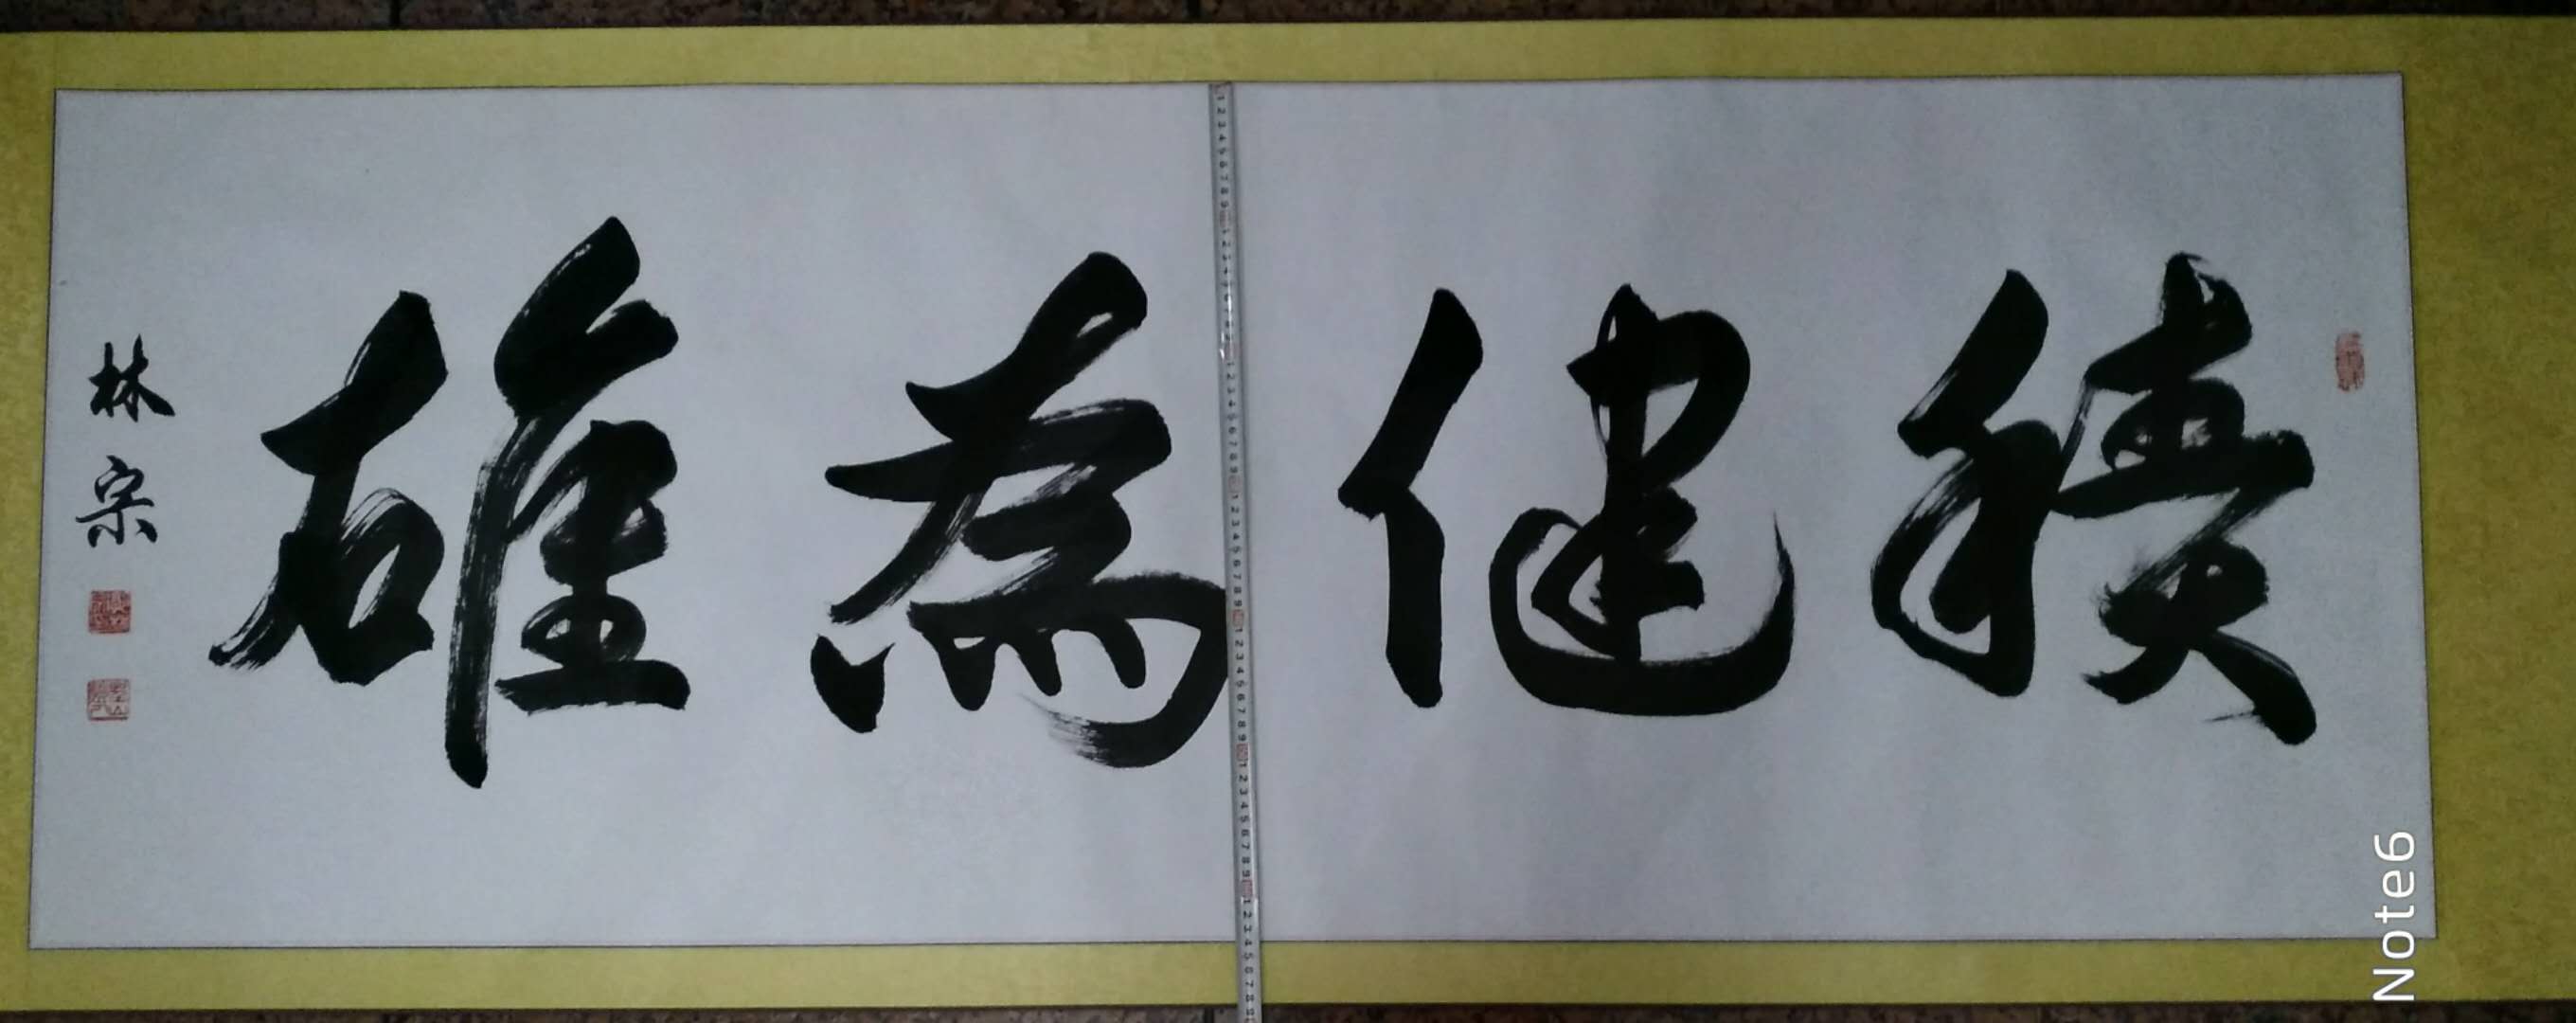 積健為雄
林宗
Note6